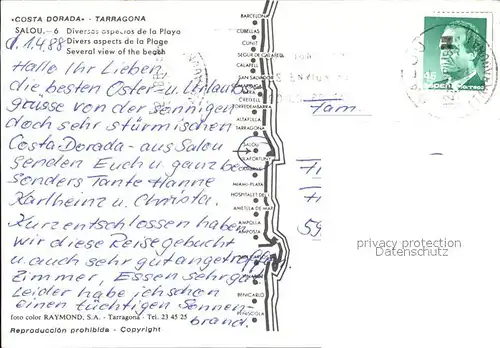 «COSTA DORADA» - TARRAGONA
SALOU.—6 Diversos aspectos de la Playa
Divers aspects de la Plage
Several view of the beach
d. 1.4.88
Hallo Ihr Lieben,
die besten Oster- u. Urlaubs
grüsse von der sonnigen
doch sehr stürmischen
Costa-Dorada - aus Salou
senden Euch u. ganz be
sonders Tante Hanne
Karlheinz u. Christa.
Kurzentschlossen haben
wir diese Reise gebucht
u. auch sehr gut angetroffen
Zimmer, Essen sehr gut
Leider habe ich schon
einen tüchtigen Sonnen-
brand.
foto color RAYMOND, S.A. - Tarragona - Tel. 23 45 25
Reproducción prohibida - Copyright
BARCELONA
CUBELLAS
CUNIT
SEGUR DE CALAFELL
CALAFELL
SAN SALVADOR
CREIXELL
TORREDEMBARRA
ALTAFULLA
TARRAGONA
SALOU
VILAFORTUNY
MIAMI-PLAYA
HOSPITALET
AMETLLA DE MAR
AMPOLLA
AMPOSTA
BENICARLO
PEÑISCOLA
Fam.
privacy protection
Datenschutz